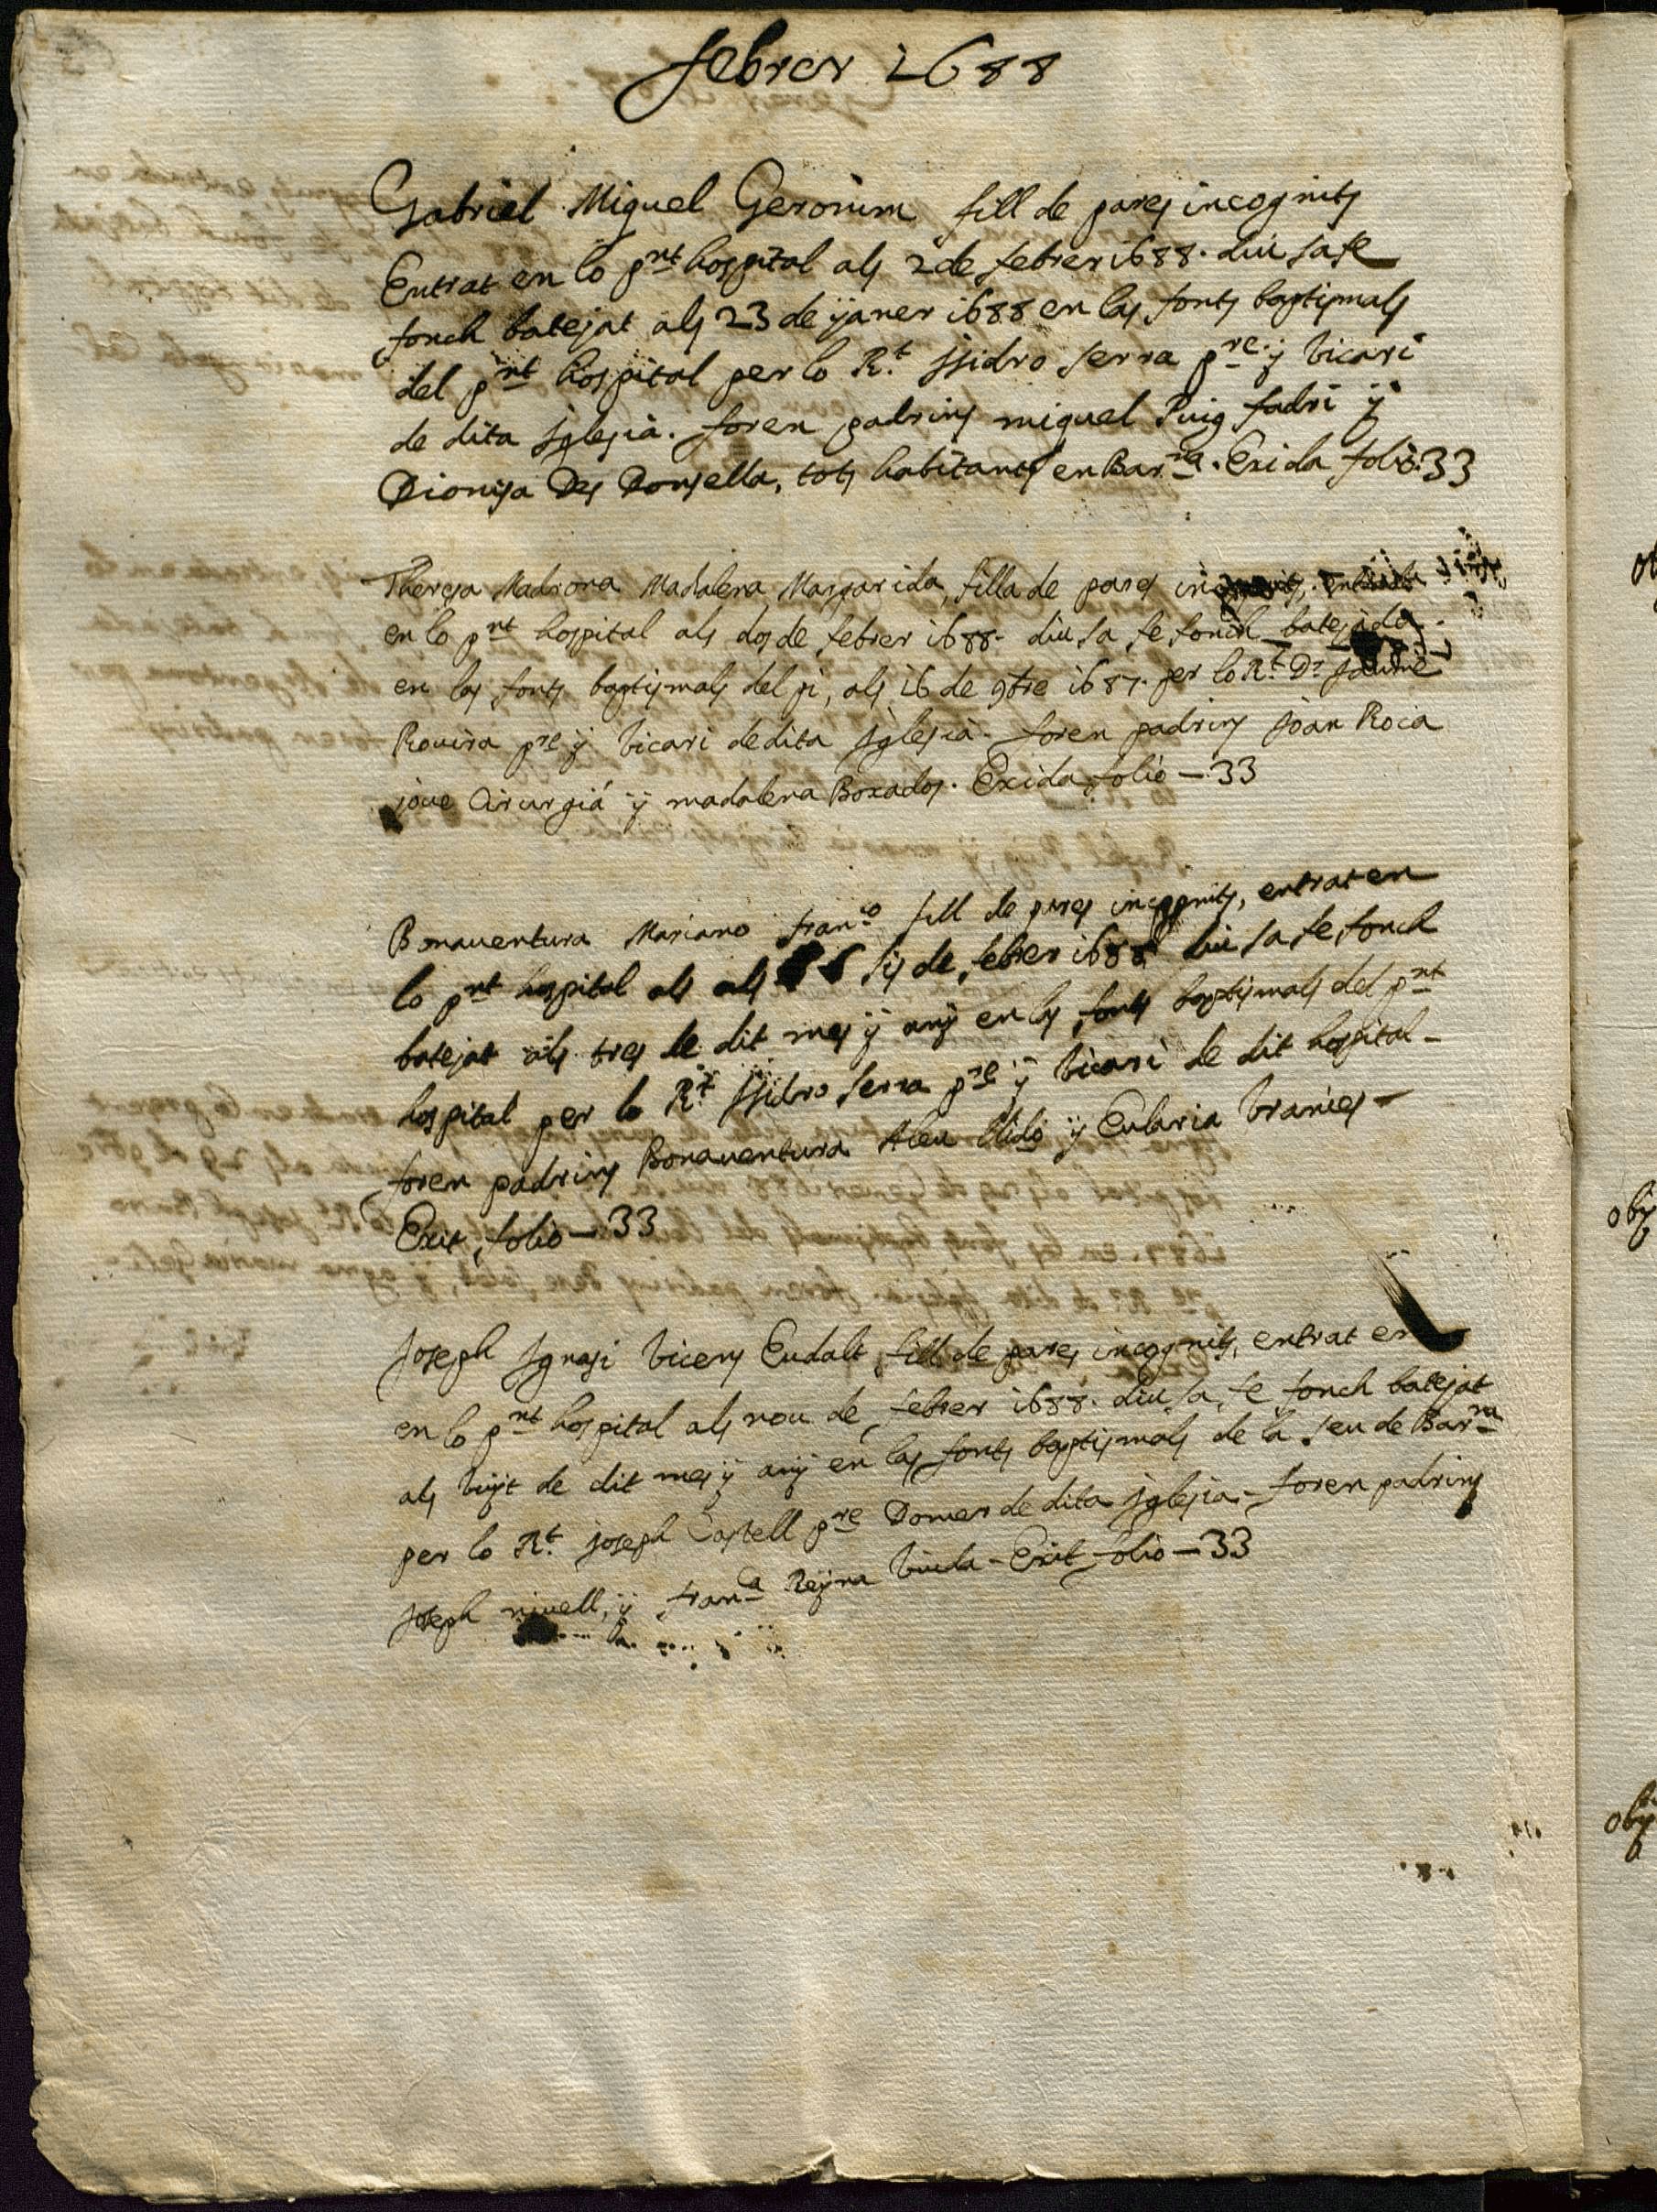 febrer 1688
Gabriel Miquel Geronim fill de pares incognits
Entrat en lo pnt hospital als 2 de febrer 1688. diu sa fe
fonch batejat als 23 de ÿaner 1688 en las fonts baptismals
del pnt hospital per lo Rt. Jsidro serra pre. ÿ vicari
de dita Jglesia. foren padrins miquel Puig fadri ÿ
Dionisa Des Donsella, tots habitants en Barna. Exida folio. 33
Theresa Madrona Madalena Margarida, filla de pares incognits, entrada
en lo pnt hospital als dos de febrer 1688. diu sa fe fonch batejada
en las fonts baptismals del pi, als 16 de 9bre 1687. per lo Rt. Dr Jaume
Rovira pre ÿ vicari de dita Jglesia. foren padrins Joan Roca
jove Cirurgiá ÿ madalena Boxados. Exida folio - 33
Bonaventura Mariano franco fill de pares incognits, entrat en
lo pnt hospital als als sis de febrer 1688 diu sa fe fonch
batejat als tres de dit mes ÿ anÿ en las fonts baptismals del pnt
hospital per lo Rt. Jsidro serra pre ÿ vicari de dit hospital -
foren padrins Bonaventura Aleu ÿ Eularia
Exit folio - 33
Joseph Jgnasi vicens Eudalt fill de pares incognits, entrat en
en lo pnt hospital als nou de febrer 1688. diu sa fe fonch batejat
als vuÿt de dit mes ÿ anÿ en las fonts baptismals de la seu de Barna
per lo Rt. Joseph Castell pre Domer de dita Jglesia - foren padrins
Joseph nivell, ÿ frana Reÿna viuda - Exit folio - 33
obÿ
obÿ